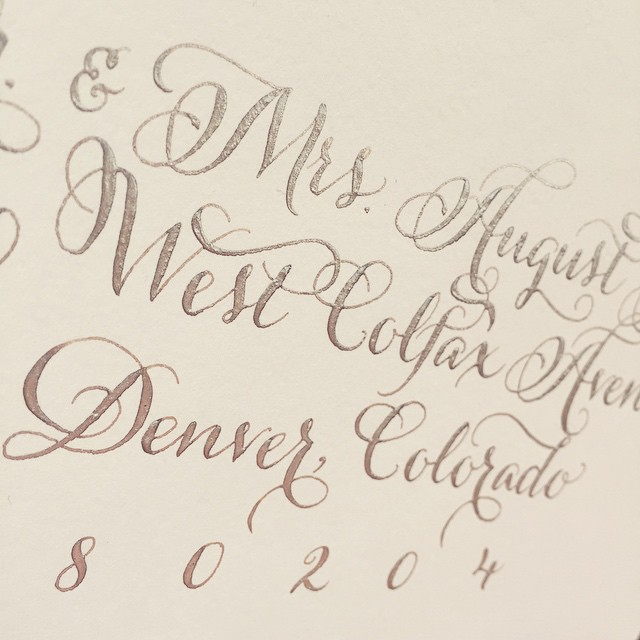 & Mrs. August
West Colfax
Denver, Colorado
80204